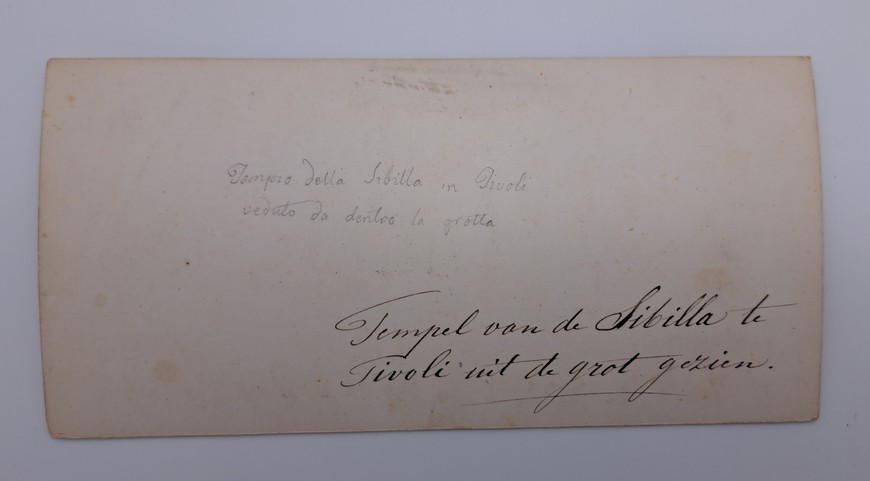 Tempio della Sibilla in Tivoli
veduto da dentro la grotta
Tempel van de Sibilla te
Tivoli uit de grot gezien.